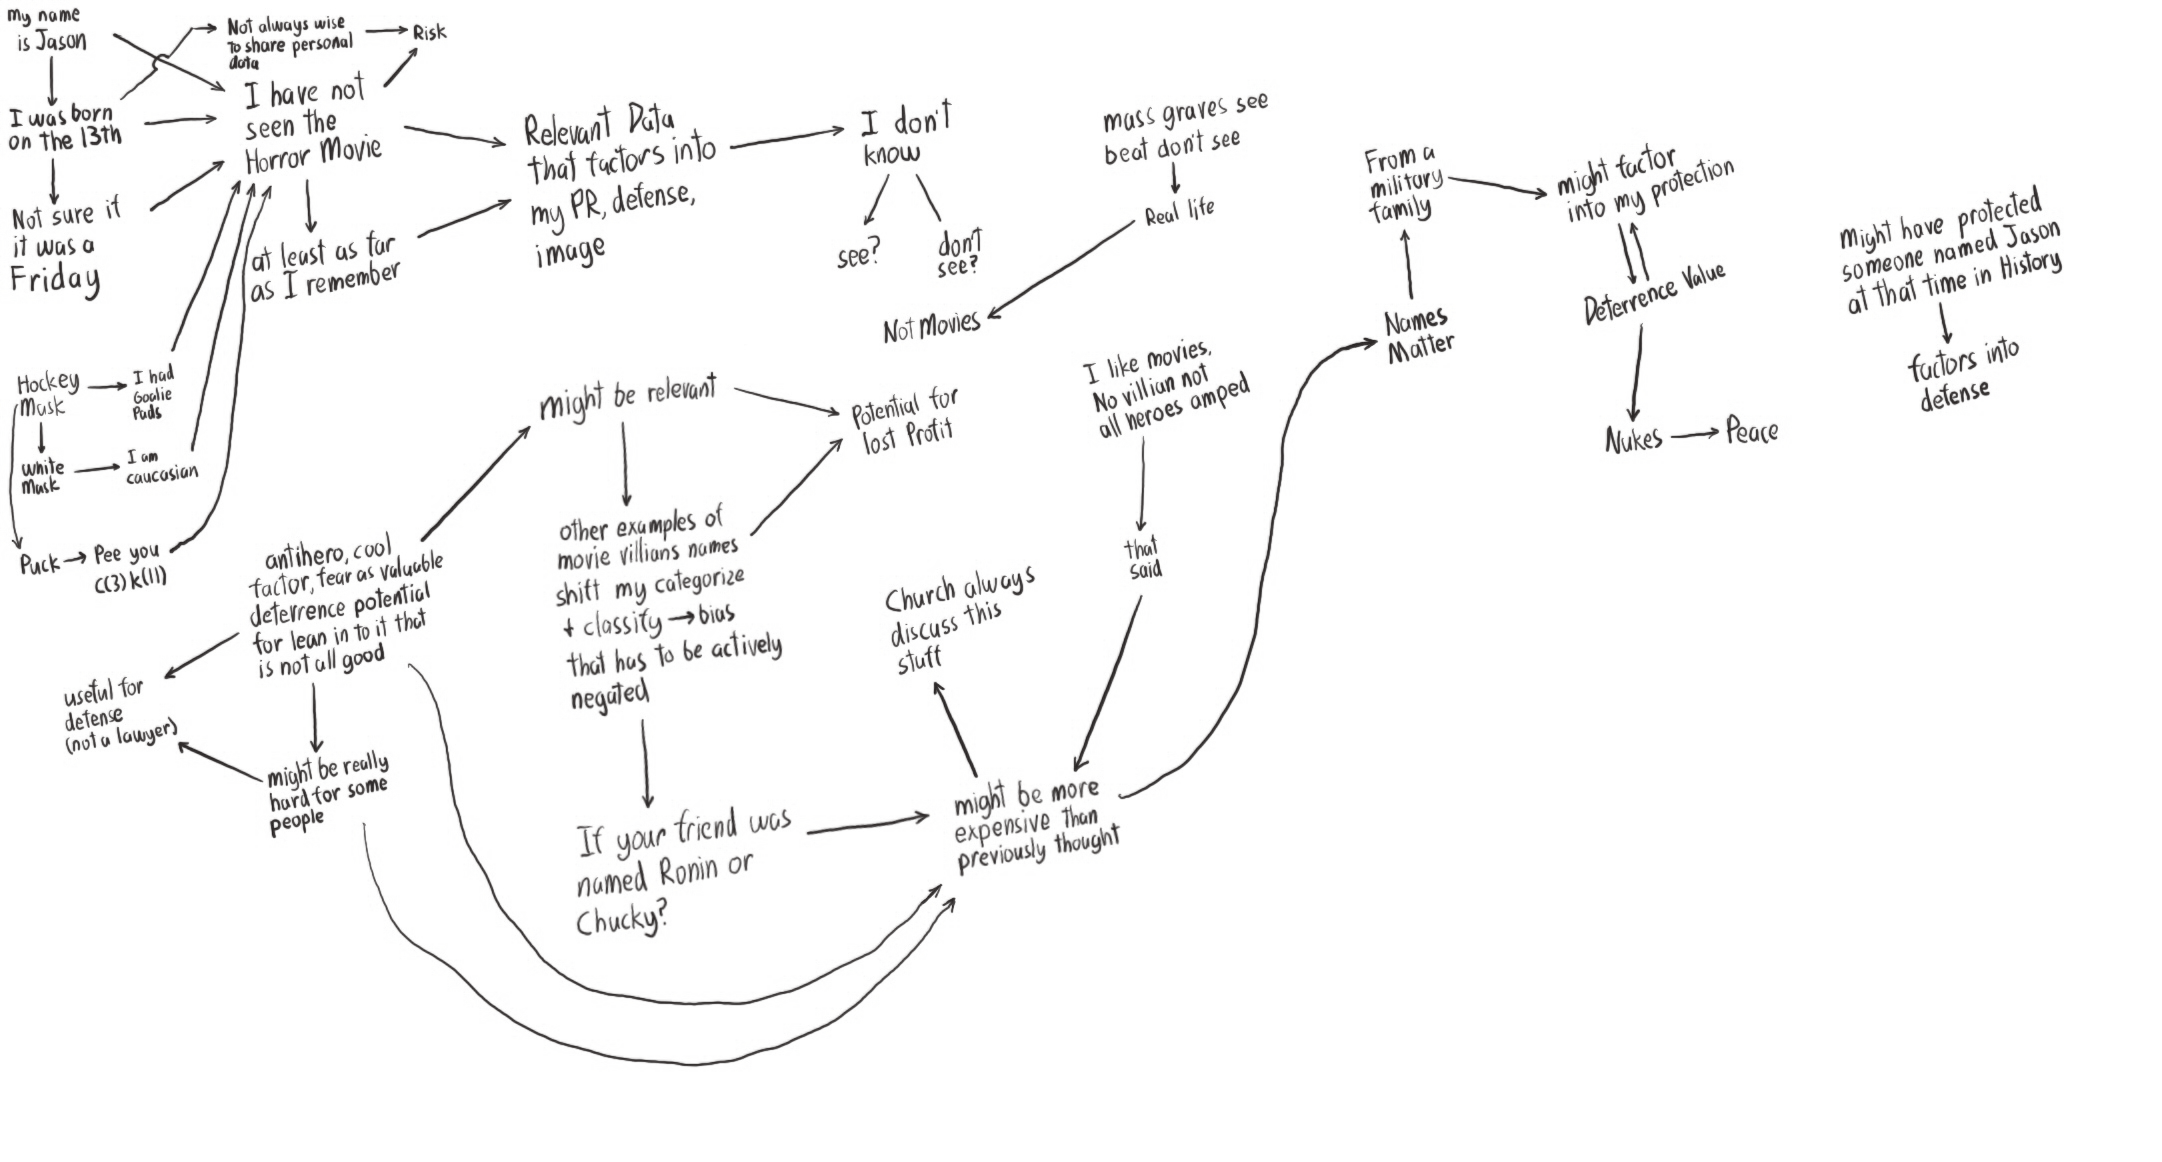 my name
is Jason
I was born
on the 13th
Not sure if
it was a
Friday
Not always wise
to share personal
data
Risk
I have not
seen the
Horror Movie
at least as far
as I remember
Hockey
Mask
I had
Goalie
Pads
White
Mask
I am
caucasian
Puck
Pee you
c(3)k(11)
Relevant Data
that factors into
my PR, defense,
image
I don't
know
see?
don't
see?
mass graves see
beat don't see
Real life
Not Movies
antihero, cool
factor, fear as valuable
deterrence potential
for lean in to it that
is not all good
useful for
defense
(not a lawyer)
might be really
hard for some
people
might be relevant
Potential for
lost Profit
other examples of
movie villians names
shift my categorize
+ classify → bias
that has to be actively
negated
If your friend was
named Ronin or
Chucky?
I like movies,
No villian not
all heroes amped
that
said
might be more
expensive than
previously thought
Church always
discuss this
stuff
Names
Matter
From a
military
family
might factor
into my protection
Deterrence Value
Nukes
Peace
Might have protected
someone named Jason
at that time in History
factors into
defense